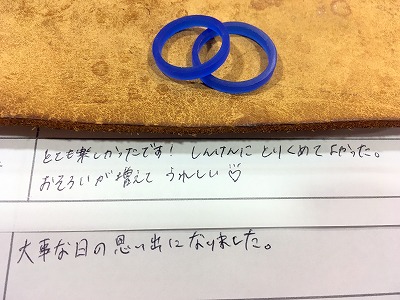 とても楽しかったです！ しんけんにとりくめてよかった。
おそろいが増えて うれしい♡
大事な日の思い出になりました。